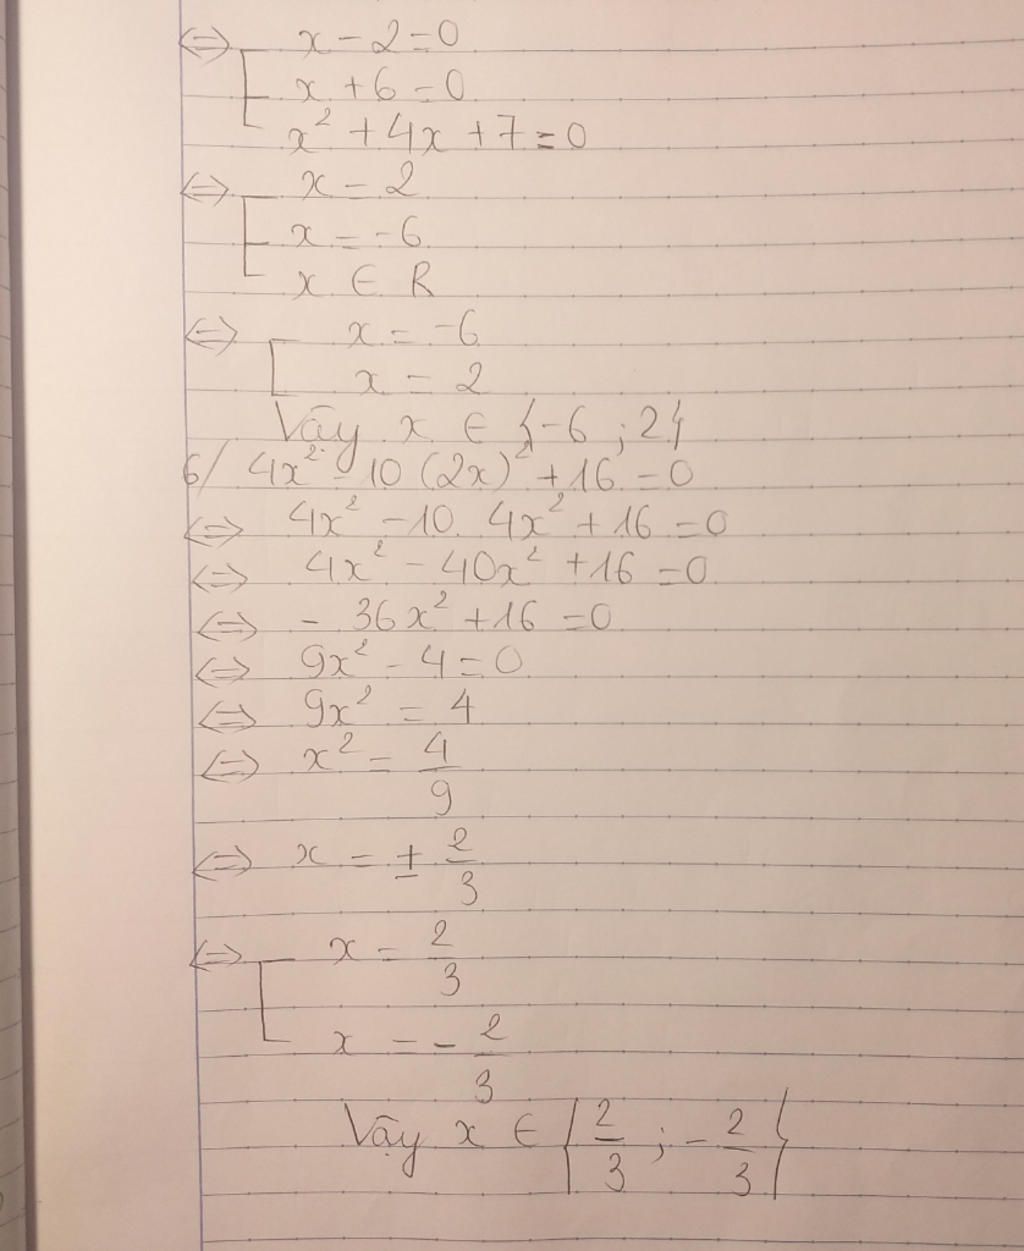 ⇔ [ x - 2 = 0
x + 6 = 0
x² + 4x + 7 = 0
⇔ [ x = 2
x = -6
x ∈ R
⇔ [ x = -6
x = 2
Vậy x ∈ {-6 ; 2}
6/ 4x² - 10 (2x)² + 16 = 0
⇔ 4x² - 10. 4x² + 16 = 0
⇔ 4x² - 40x² + 16 = 0
⇔ - 36x² + 16 = 0
⇔ 9x² - 4 = 0
⇔ 9x² = 4
⇔ x² = 4/9
⇔ x = ± 2/3
⇔ [ x = 2/3
x = - 2/3
Vậy x ∈ { 2/3 ; - 2/3 }